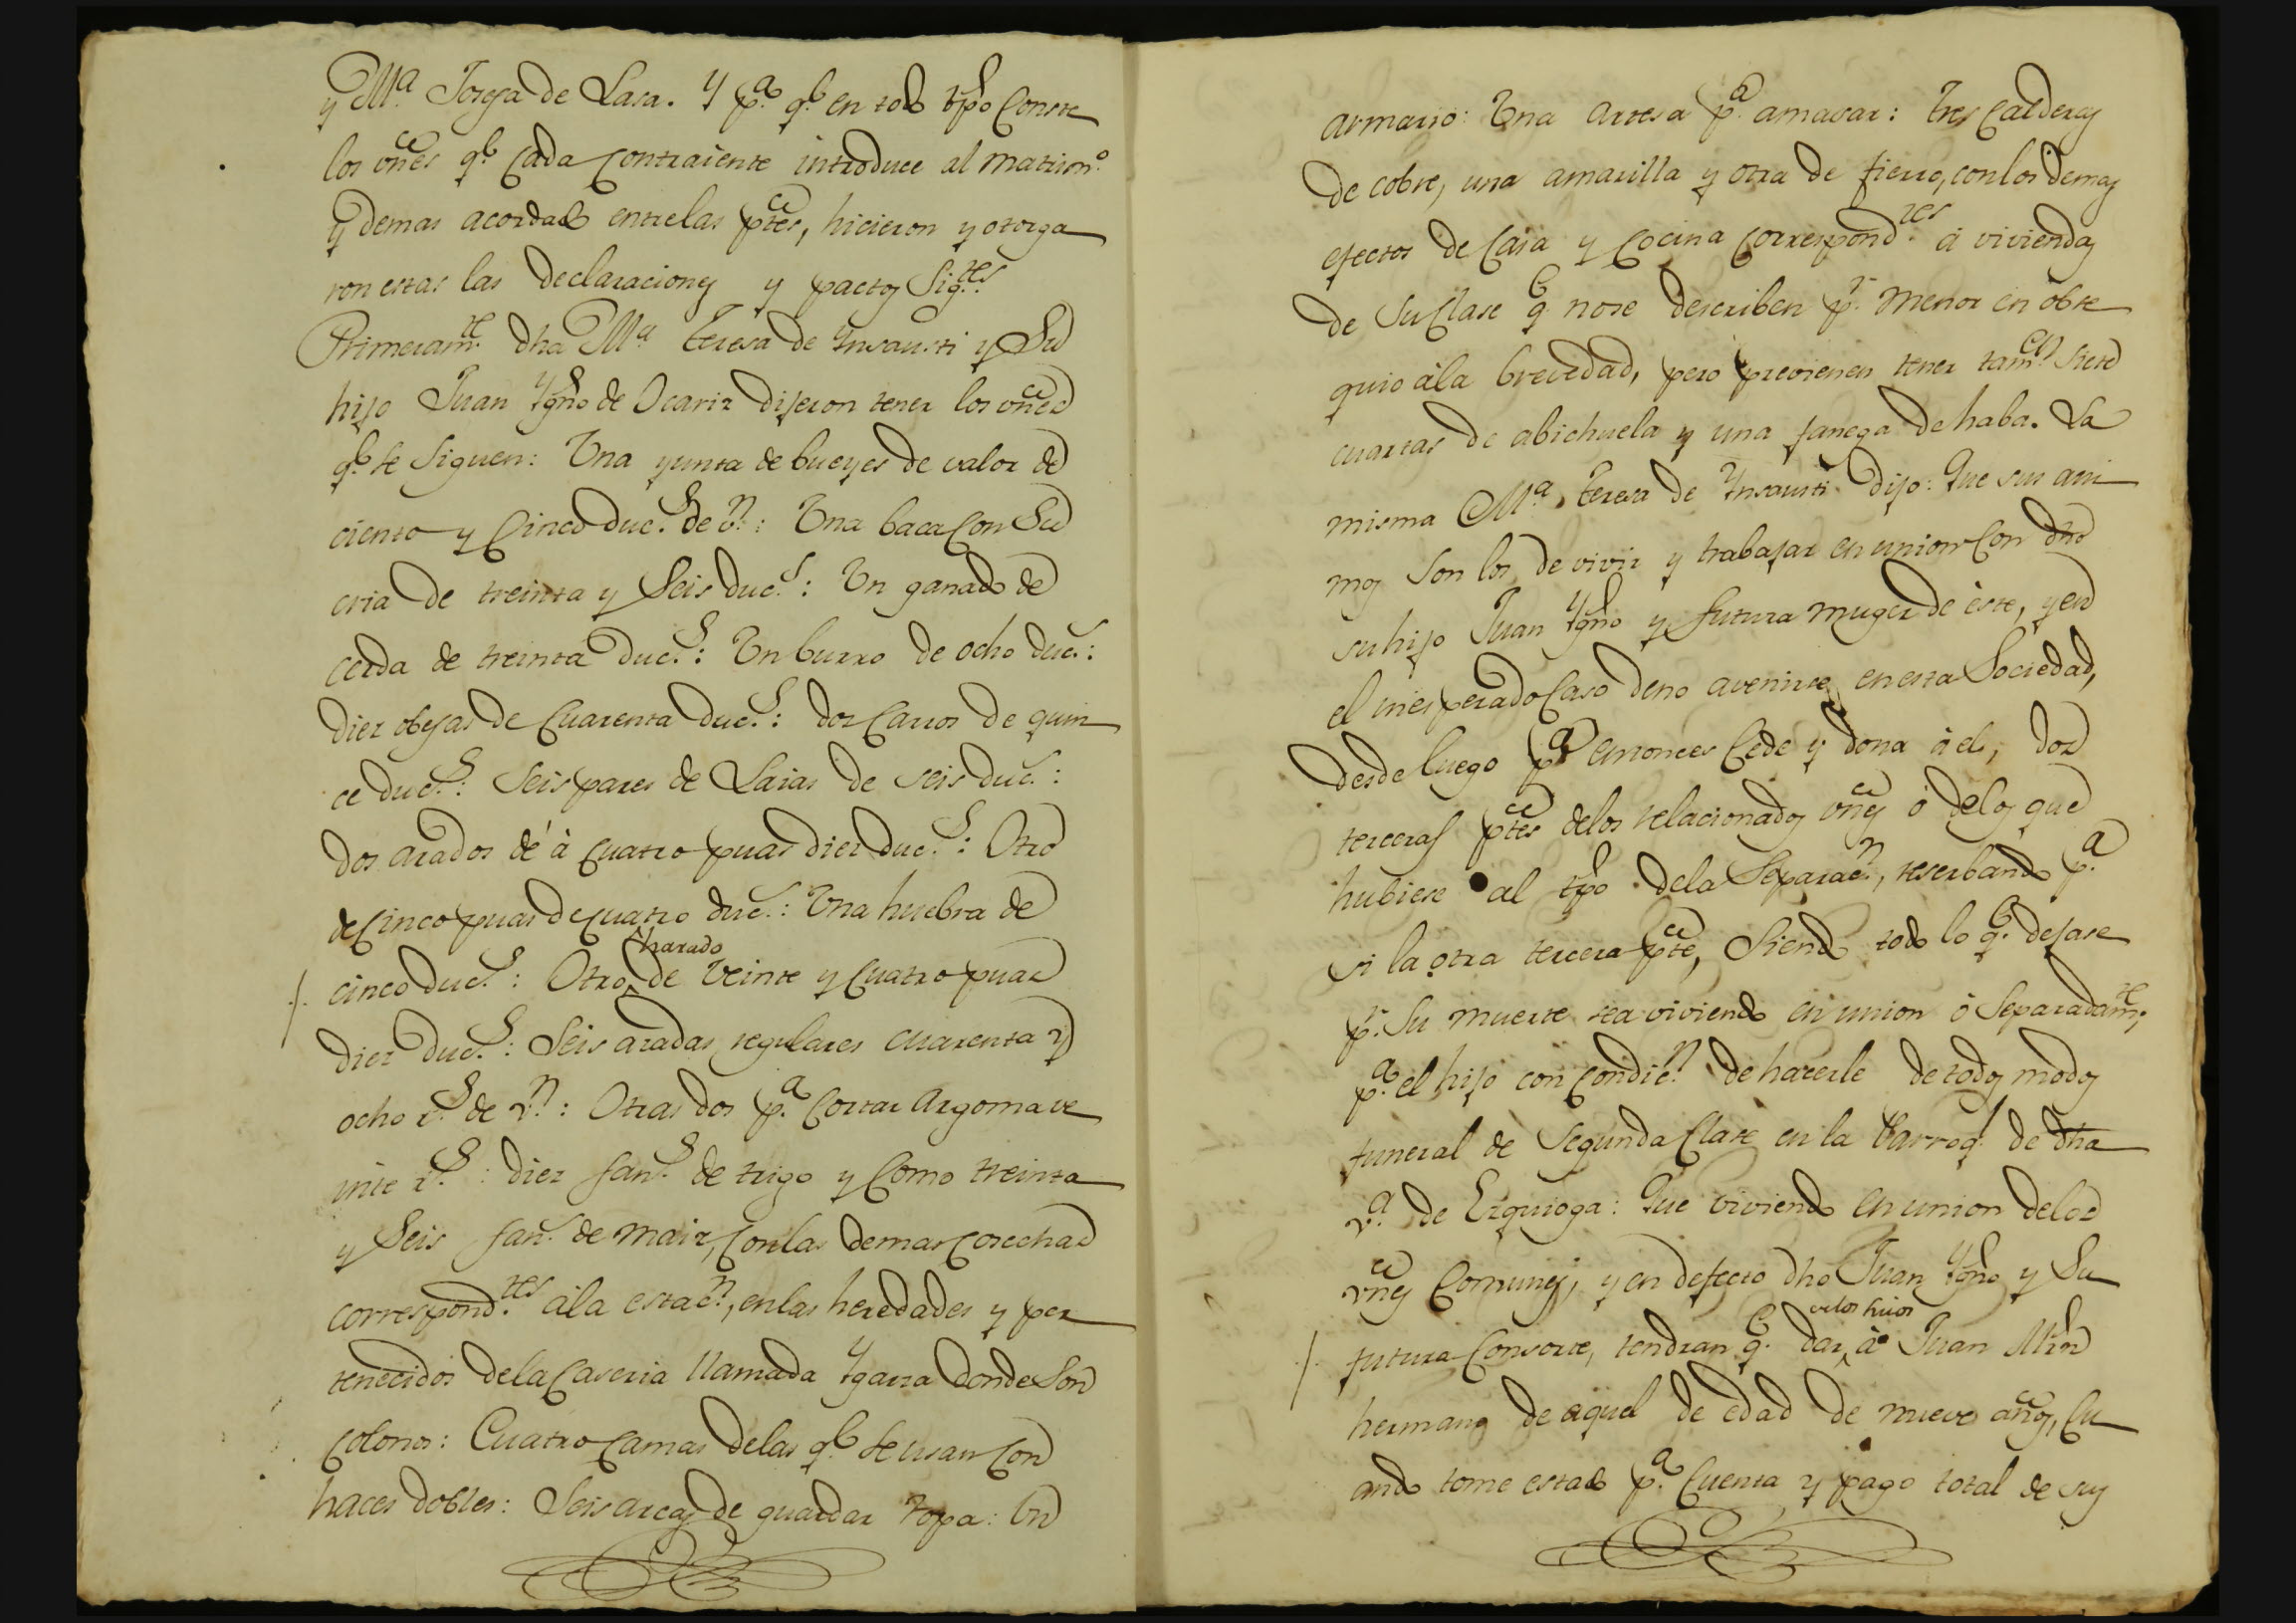 y M.ª Josefa de Lasa. Y p.ª q.e en todo tpo Conste
los vnes q.e Cada Contraiente introduce al matrim.º
y demas acordado entrelas ptes, hicieron y otorga
ron estas las declaraciones y pactos Sig.tes
Primeram.te dha M.ª Teresa de Ynsausti y Su
hijo Juan Ygno de Ocariz dijeron tener los vnes
q.e se Siguen: Una yunta de bueyes de valor de
ciento y Cinco duc.s de v.n: Una baca Con Su
cria de treinta y Seis duc.s: Un ganado de
cerda de treinta duc.s: Un burro de ocho duc.s:
diez obejas de Cuarenta duc.s: dos Carros de quin
ce duc.s: Seis pares de Laias de seis duc.s:
dos arados de à Cuatro puas diez duc.s: Otro
de Cinco puas de Cuatro duc.s: Una huebra de
harado
cinco duc.s: Otro de Veinte y Cuatro puas
diez duc.s: Seis aradas regulares Cuarenta y
ocho r.s de v.n: Otras dos p.ª Cortar Argoma ve
inte r.s: diez fan.s de trigo y Como treinta
y Seis fan.s de maiz, Con las demas Cosechas
correspond.tes àla estac.n, en las heredades y per
tenecidos dela Caseria llamada Ygarza donde Son
Colonos: Cuatro Camas delas q.e se usan Con
haces dobles: Seis arcas de guardar ropa: Un
armario: Una artesa p.ª amasar: tres Calderas
de cobre, una amarilla y otra de fierro, con los demas
efectos de Casa y Cocina Correspond.tes à viviendas
de Su Clase q.e nose describen p.r menor en obse
quio àla brevedad, pero previenen tener tam.en Siete
cuartas de abichuela y una fanega de haba. La
misma M.ª Teresa de Ynsausti dijo: Que sus ani
mos Son los de vivir y trabajar en union Con dho
su hijo Juan Ygno y futura muger de èste, y en
el inesperado Caso deno avenirse en esta Sociedad,
desde luego p.ª entonces Cede y dona à el, dos
terceras ptes delos relacionados vnes ó delos que
hubiese al tpo dela Separac.n, reserbando p.ª
si la otra tercera pte, Siendo todo lo q.e dejase
p.r Su muerte sea viviendo en union ó Separadam.te,
p.ª el hijo con Condic.n de hacerle de todos modos
funeral de Segunda Clase en la Parroq.l de dha
v.ª de Ezquioga: Que viviendo en union delos
vnes Comunes, y en defecto dho Juan Ygno y Su
delos suios
futura Consorte, tendran q.e dar à Juan Mrn
hermano de aquel de edad de nueve años, Cu
ando tome estado p.ª Cuenta y pago total de sus